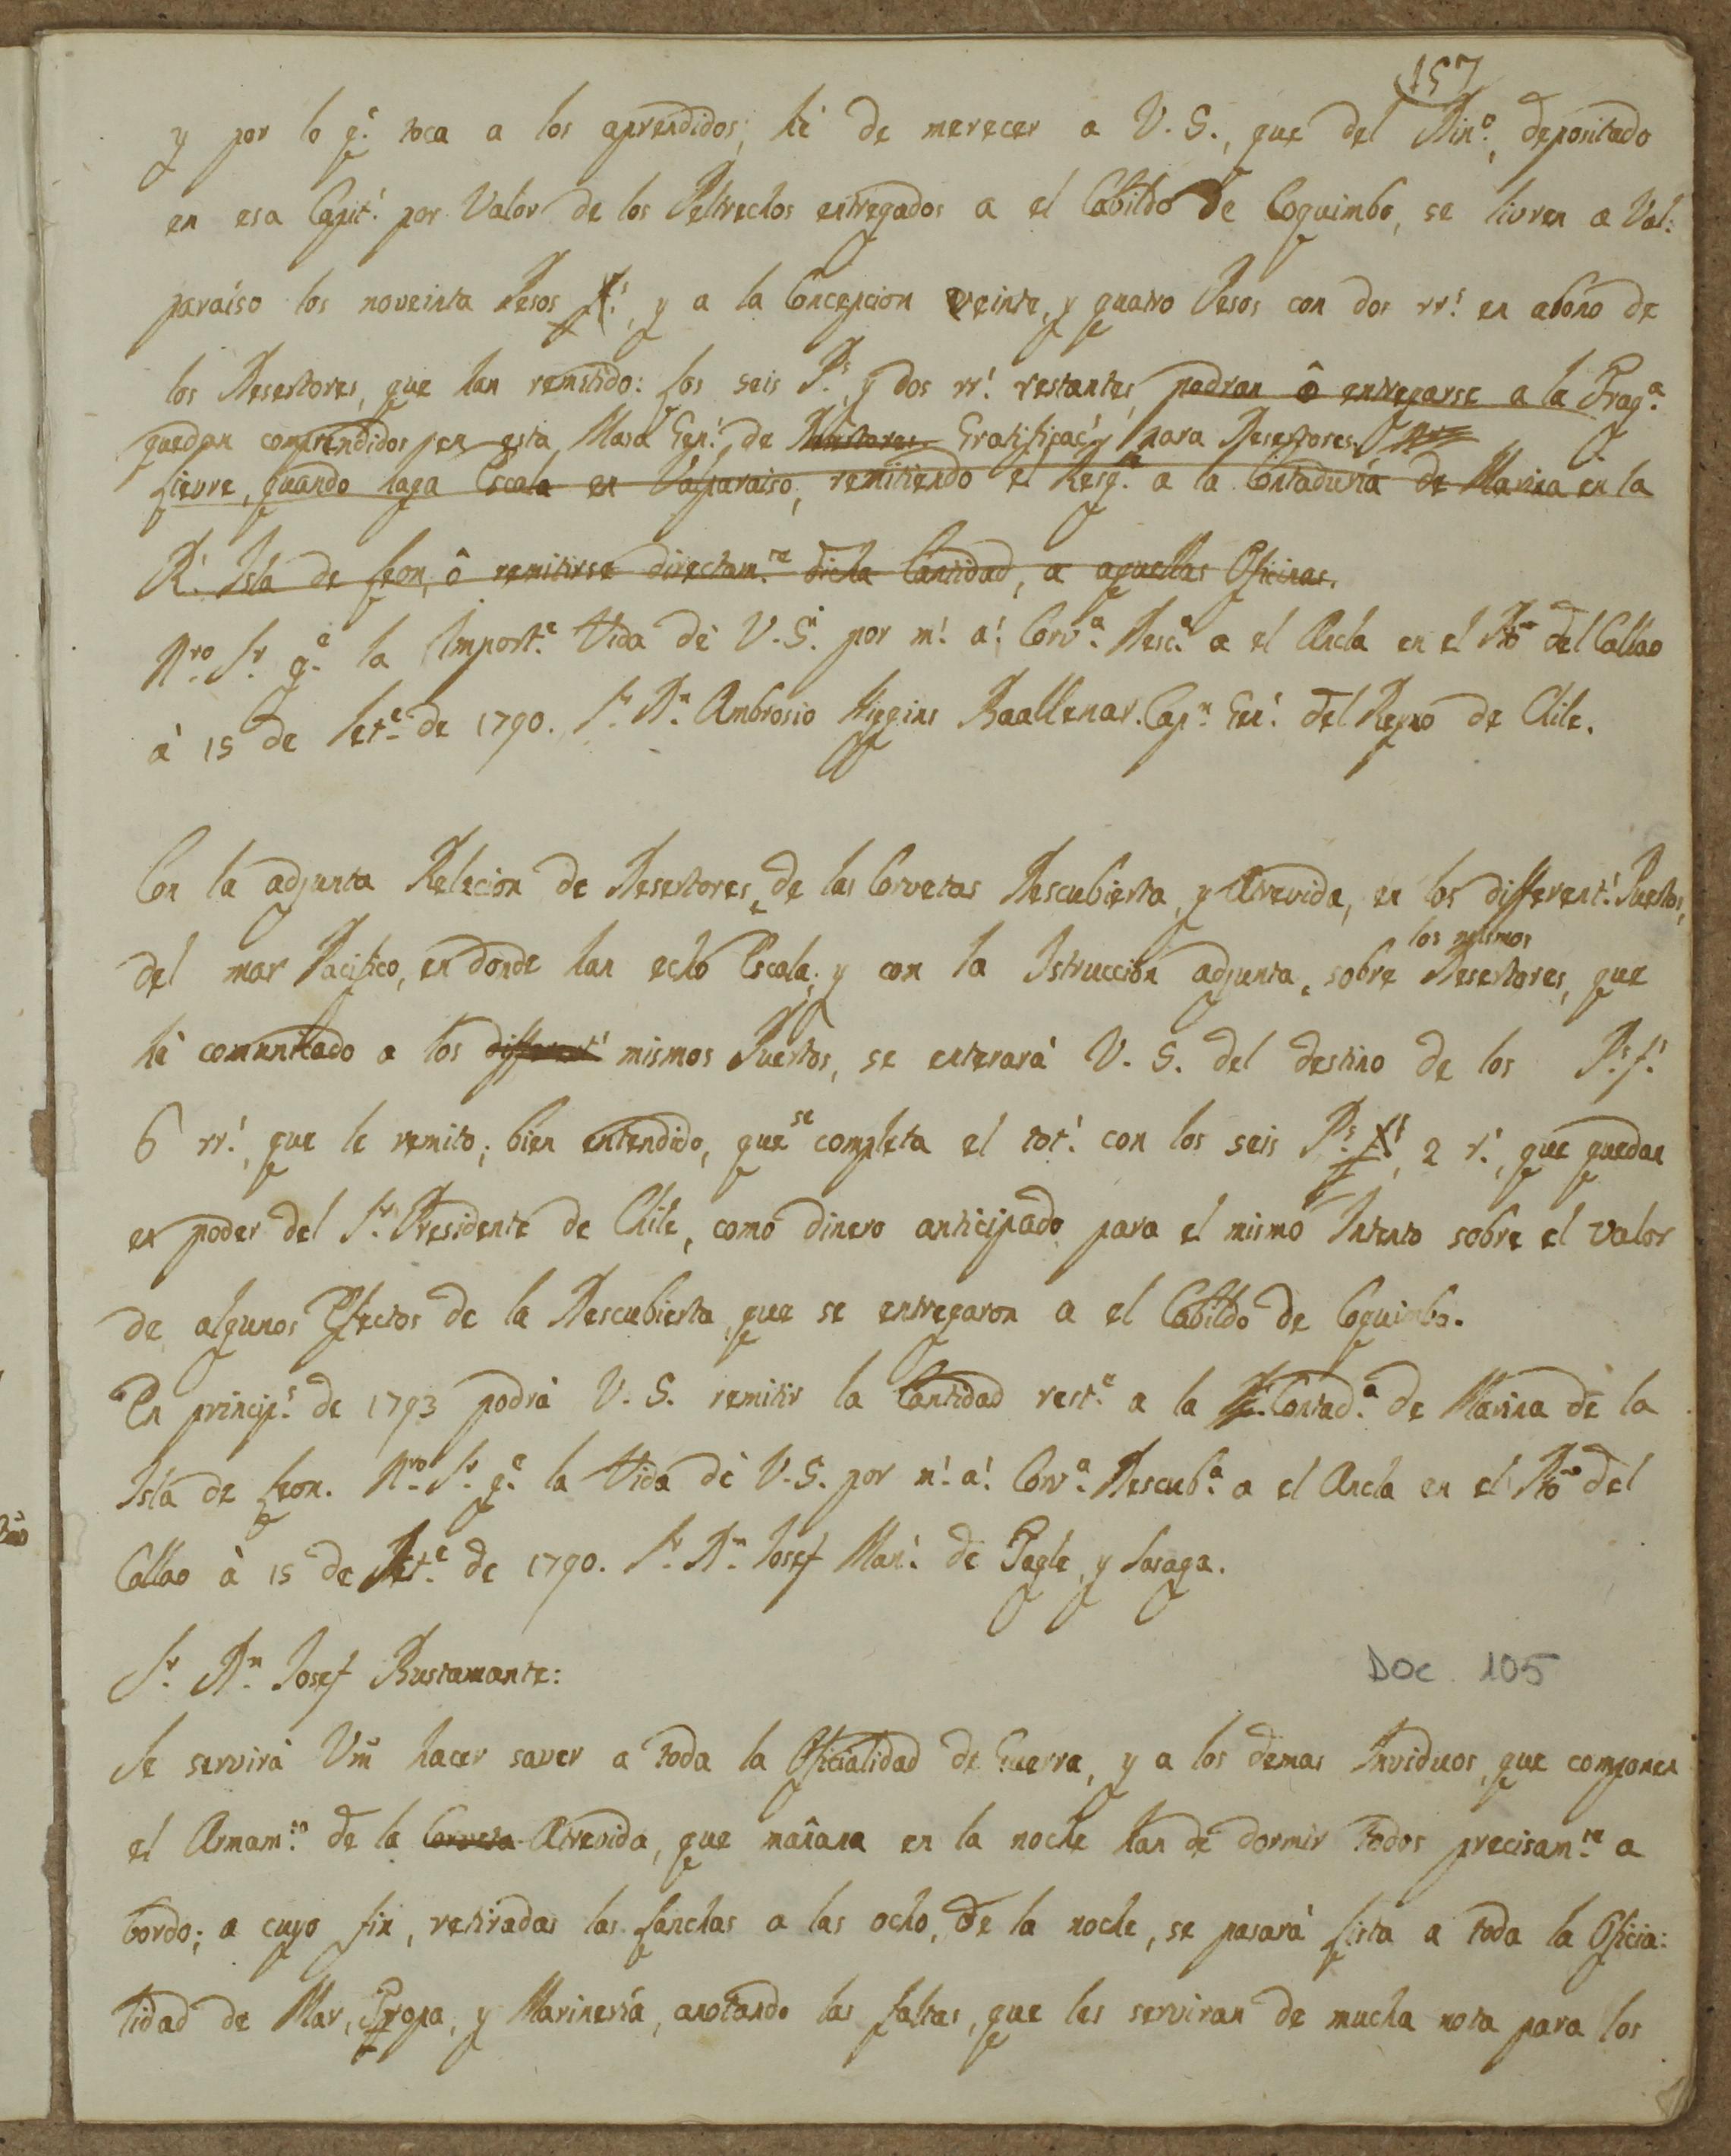 157
y por lo q.e toca a los aprendidos; hè de merecer a V. S., que del Din.o, depositado
en esa Capit.l por Valor de los Peltrechos entregados a el Cabildo de Coquimbo, se livren a Val:
paraíso los noveinta Pesos f.s, y a la Concepcion veinte, y quatro Pesos con dos rr.s en abono de
los Desertores, que han remitido: los seis P.s y dos rr.s restantes, podran ô entregarse a la Frag.a
quedan comprendidos en esta Masa Gen.l de Desertores Gratificac.n para Desertores.
Lievre, quando haga Escala en Valparaiso, remitiendo el Resg.do a la Contaduría de Marina en la
R.l Isla de Leon, ô remitirse directam.te dicha Cantidad, a aquellas Oficinas.
N.ro S.r g.e la Import.e Vida de V.S. por m.s a.s Corv.a Desc.a a el Ancla en el Pto del Callao
à 15 de Set.e de 1790. S.r D.n Ambrosio Higgins Baallenar. Cap.n Gen.l del Reyno de Chile.
Con la adjunta Relacion de Desertores, de las Corvetas Descubierta, y Atrevida, en los different.s Puertos,
del mar Pacifico, en donde han echo Escala; y con la Istruccion adjunta, sobre los mismos Desertores, que
hè comunicado a los different.s mismos Puertos, se enterarà V. S. del destino de los P.s f.s
6 rr.s, que le remito; bien entendido, que se completa el tot.l con los seis P.s f.s, 2 r.s, que quedan
en poder del S.r Presidente de Chile, como dinero anticipado para el mismo Intento sobre el valor
de algunos Efectos de la Descubierta, que se entregaron a el Cabildo de Coquimbo.
En princip.s de 1793 podrà V. S. remitir la Cantidad rest.e a la Contad.a de Marina de la
Isla de Leon. N.ro S.r g.e la Vida de V.S. por m.s a.s Corv.a Descub.a a el Ancla en el Pto del
Callao à 15 de Set.e de 1790. S.r D.n Josef Man.l de Tagle, y Isasaga.
S.r D.n Josef Bustamante:
DOC 105
Se servirà Vm̃ hacer saver a toda la Oficialidad de Guerra, y a los demas Inviduos, que componen
el Armam.to de la Corveta Atrevida, que mañana en la noche han de dormir todos precisam.te a
bordo; a cuyo fin, retiradas las Lanchas a las ocho, de la noche, se pasarà Lista a toda la Oficia:
lidad de Mar, Tropa, y Marinería, anotando las faltas, que les serviran de mucha nota para los